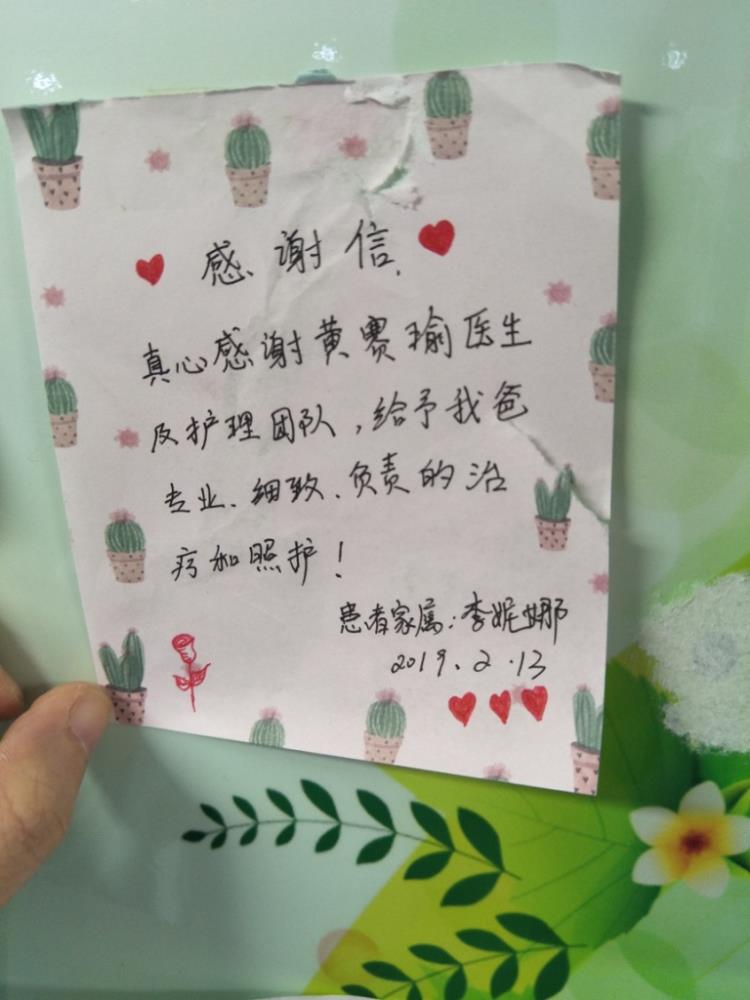 感谢信
真心感谢黄赛瑜医生
及护理团队，给予我爸
专业、细致、负责的治
疗和照护！
患者家属：李妮娜
2019.2.13